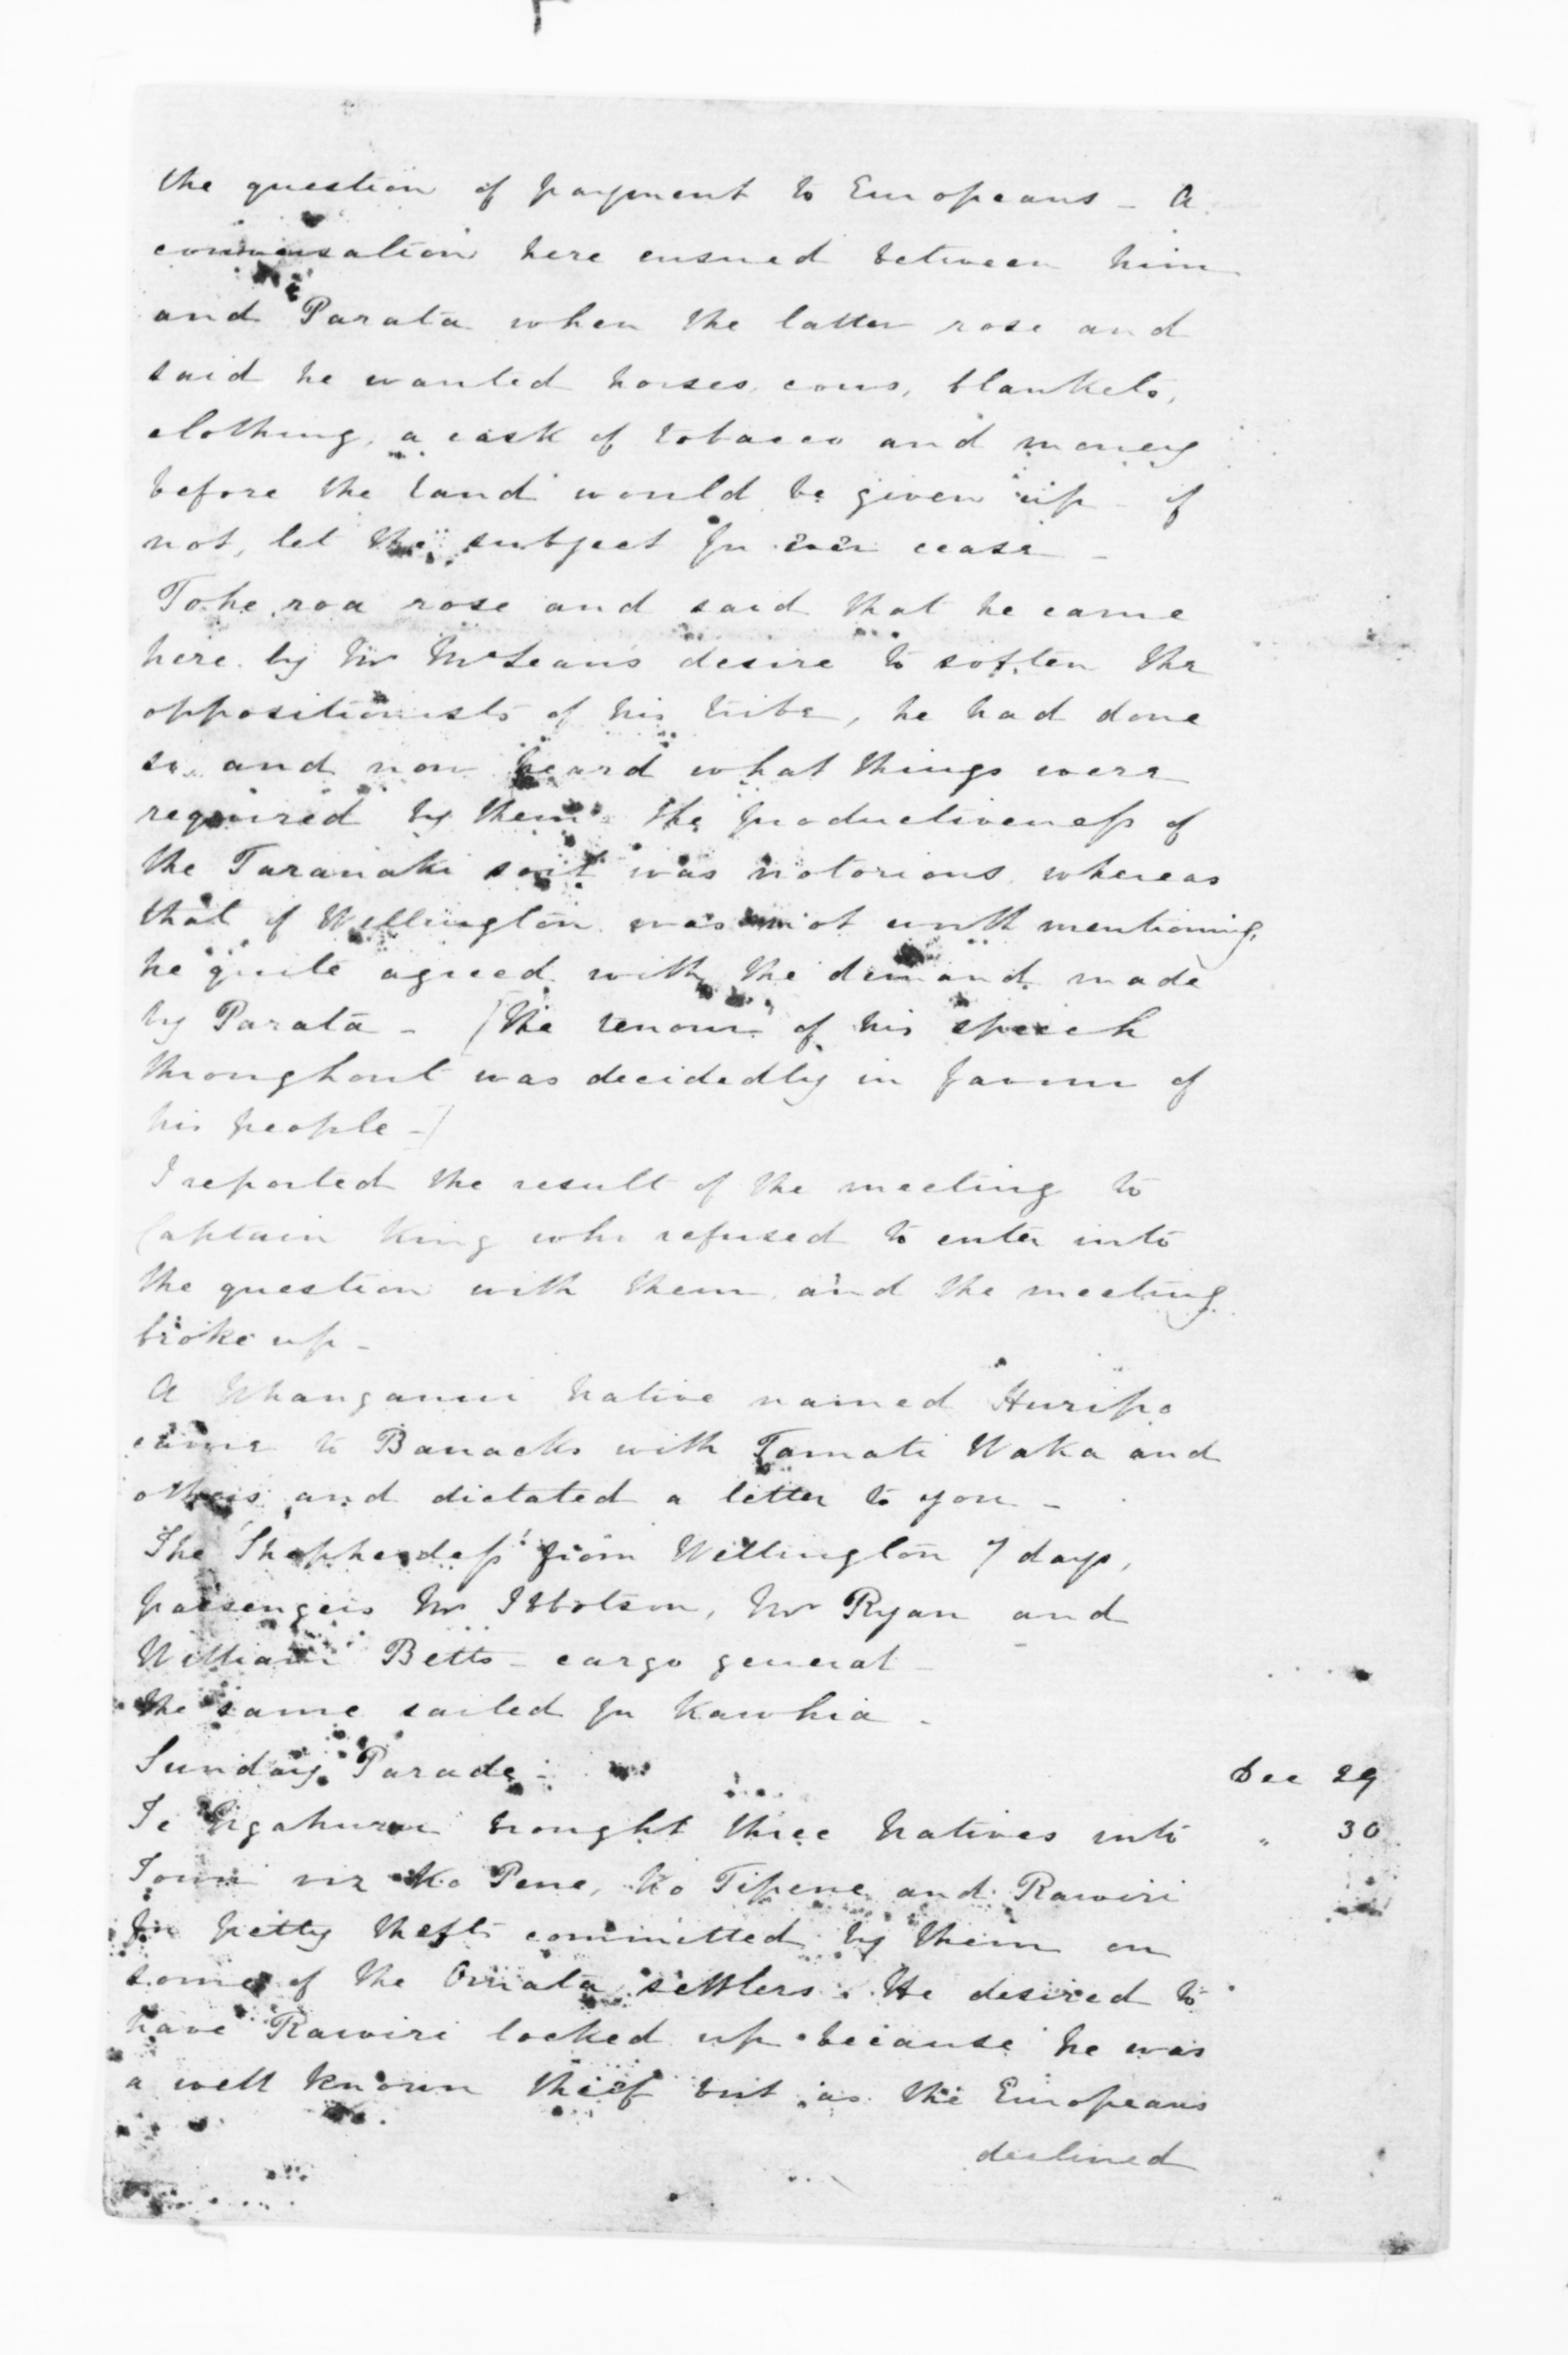 the question of payment to Europeans - A
conversation here ensued between him
and Parata when the latter rose and
said he wanted horses, cows, blankets,
clothing, a cask of tobacco and money
before the land would be given up - if
not, let the subject for ever cease -
Tohe roa rose and said that he came
here by Mr McLean's desire to soften the
oppositionists of his tribe, he had done
so and now heard what things were
required by them - the productiveness of
the Taranaki soil was notorious, whereas
that of Wellington was not worth mentioning,
he quite agreed with the demand made
by Parata - [The tenour of his speech
throughout was decidedly in favour of
his people -]
I reported the result of the meeting to
Captain King who refused to enter into
the question with them, and the meeting
broke up -
A Whanganui Native named Huripo
came to Barracks with Tamati Waka and
others and dictated a letter to you -
The 'Shepherdess' from Wellington 7 days,
passengers Mr Ibbotson, Mr Ryan and
William Betts - cargo general -
the same sailed for Kawhia -
Sunday Parade - Dec 29
Te Ngahuru brought three Natives into " 30
Town viz Ko Pene, Ko Tipene and Rawiri
for petty thefts committed by them on
some of the Omata settlers. He desired to
have Rawiri locked up because he was
a well known thief but as the Europeans
declined